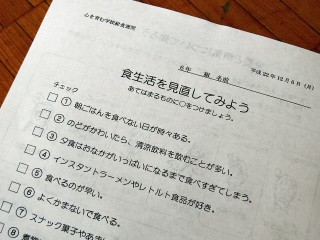 心を育む学校給食週間
平成 22年 12月 6日 (月)
6年 組 名前
食生活を見直してみよう
あてはまるものに○をつけましょう。
チェック
□ ① 朝ごはんを食べない日が時々ある。
□ ② のどがかわいたら、清涼飲料を飲むことが多い。
□ ③ 夕食はおなかがいっぱいになるまで食べすぎてしまう。
□ ④ インスタントラーメンやレトルト食品が好き。
□ ⑤ 食べるのが早い。
□ ⑥ よくかまないで食べる。
□ ⑦ スナック菓子やあま
□ ⑧